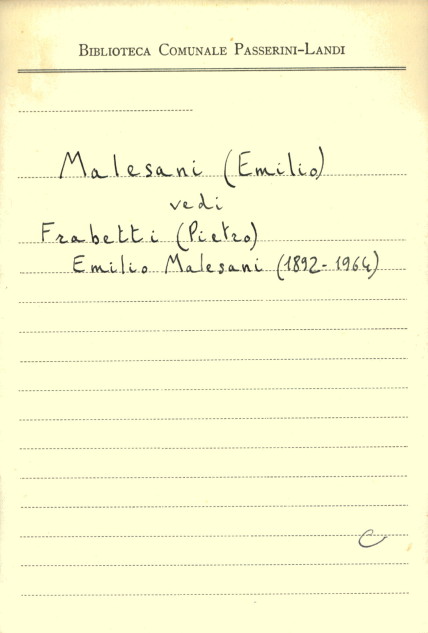 BIBLIOTECA COMUNALE PASSERINI-LANDI
Malesani (Emilio)
vedi
Frabetti (Pietro)
Emilio Malesani (1892-1964)
C